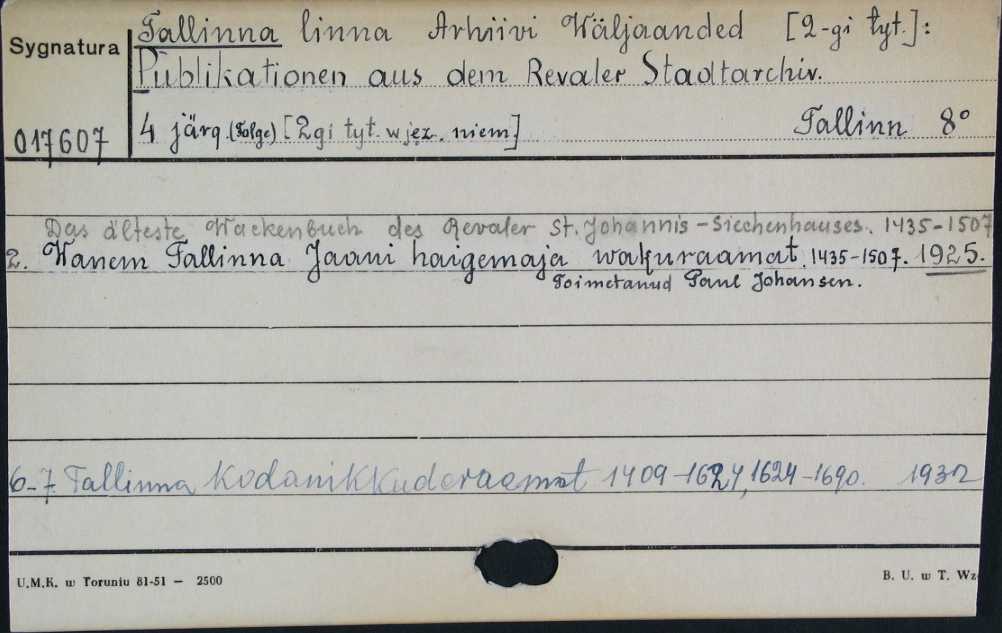 Sygnatura
Tallinna linna Arhiivi Wäljaanded [2-gi tyt.]:
Publikationen aus dem Revaler Stadtarchiv.
017607
4 järg. (Folge) [2gi tyt. w jęz. niem.] Tallinn 8°
Das älteste Wackenbuch des Revaler St. Johannis-Siechenhauses. 1435-1507
2. Wanem Tallinna Jaani haigemaja wakuraamat. 1435-1507. 1925.
Toimetanud Paul Johansen.
6-7 Tallinna Kodanikkuderaamat 1409-1624, 1624-1690. 1932
U.M.K. w Toruniu 81-51 — 2500
B. U. w T. Wz